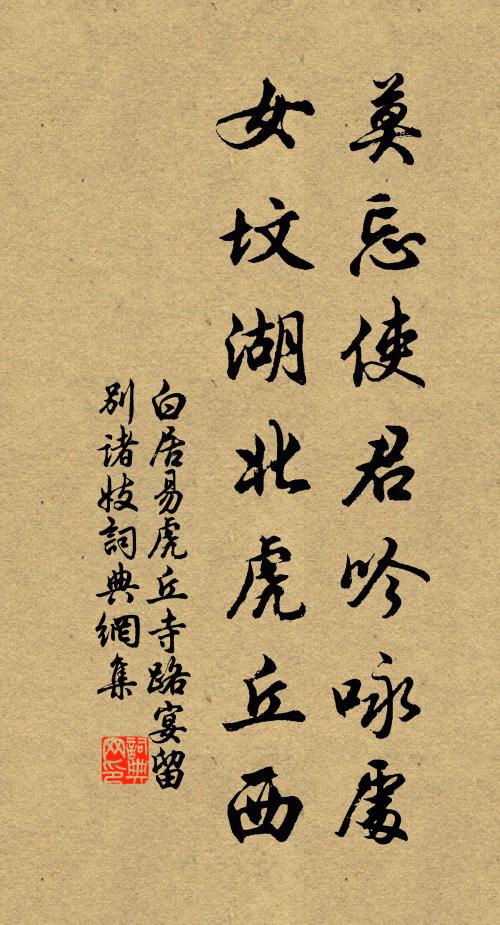 莫忘使君吟咏處
女坟湖北虎丘西
白居易虎丘寺路宴留
別諸妓詞典網集
詞典
网印